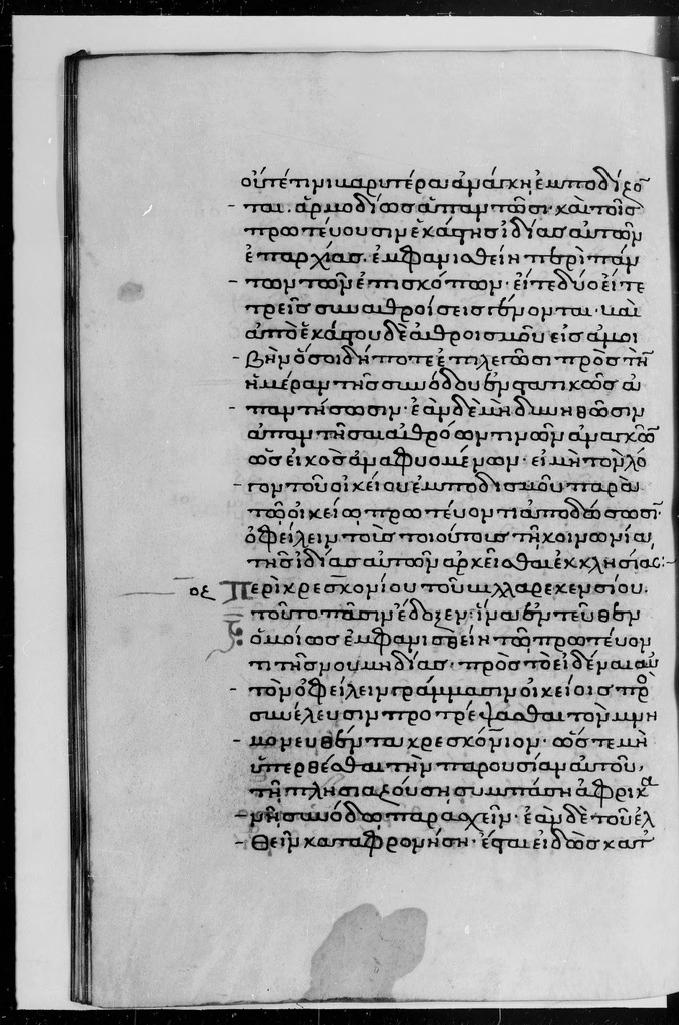 οὔτέ τινι βαρυτέρα ἀνάγκη ἐμποδίζον
ται. ἁρμοδίως ἀπαντῶσι· καὶ τοῖς
πρωτεύουσιν ἑκάστης ἰδίας αὐτῶν
ἐπαρχίας. ἐμφανισθείη περὶ πάν
των τῶν ἐπισκόπων· εἴτε δύο εἴτε
τρεῖς συναθροίσεις γένονται· καὶ
ἀπὸ ἑκάστου δὲ ἀθροισμοῦ εἰς ἀμοι
βὴν ὅσοι δήποτε ἐπιλεγῶσι πρὸς τὴν
ἡμέραν τῆς συνόδου ἐνστατικῶς ἀ
παντήσωσιν· ἐὰν δὲ μὴ δυνηθῶσιν
ἀπαντῆσαι ἀθρόων τινῶν ἀναγκῶν
ὡς εἰκὸς ἀναφυομένων· εἰ μὴ τὸν λό
γον τοῦ οἰκείου ἐμποδισμοῦ παρὰ
τῷ οἰκείῳ πρωτεύοντι ἀποδώσωσιν·
ὀφείλειν τοὺς τοιούτους τῇ κοινωνία
τῆς ἰδίας αὐτῶν ἀρκεῖσθαι ἐκκλησίας:
οζ Περὶ κρεσκονίου τοῦ βιλλαρεκενσίου.
τοῦτο πᾶσιν ἔδοξεν· ἵνα ἐντεῦθεν
ὁμοίως ἐμφανισθείη τῷ πρωτεύον
τι τῆς νουμηδίας· πρὸς τὸ εἰδέναι αὐ
τὸν ὀφείλειν γράμμασιν οἰκείοις πρὸ
συνέλευσιν προτρέψασθαι τὸν μνη
μονευθέντα κρεσκόνιον· ὥστε μὴ
ὑπερθέσθαι τὴν παρουσίαν αὐτοῦ,
τῇ πλησιαζούσῃ συμπάση ἀφρικα
νῇ συνόδῳ παρασχεῖν· ἐὰν δὲ τοῦ ἐλ
θεῖν καταφρονήσῃ· ἔσται εἰδὼς κατ'